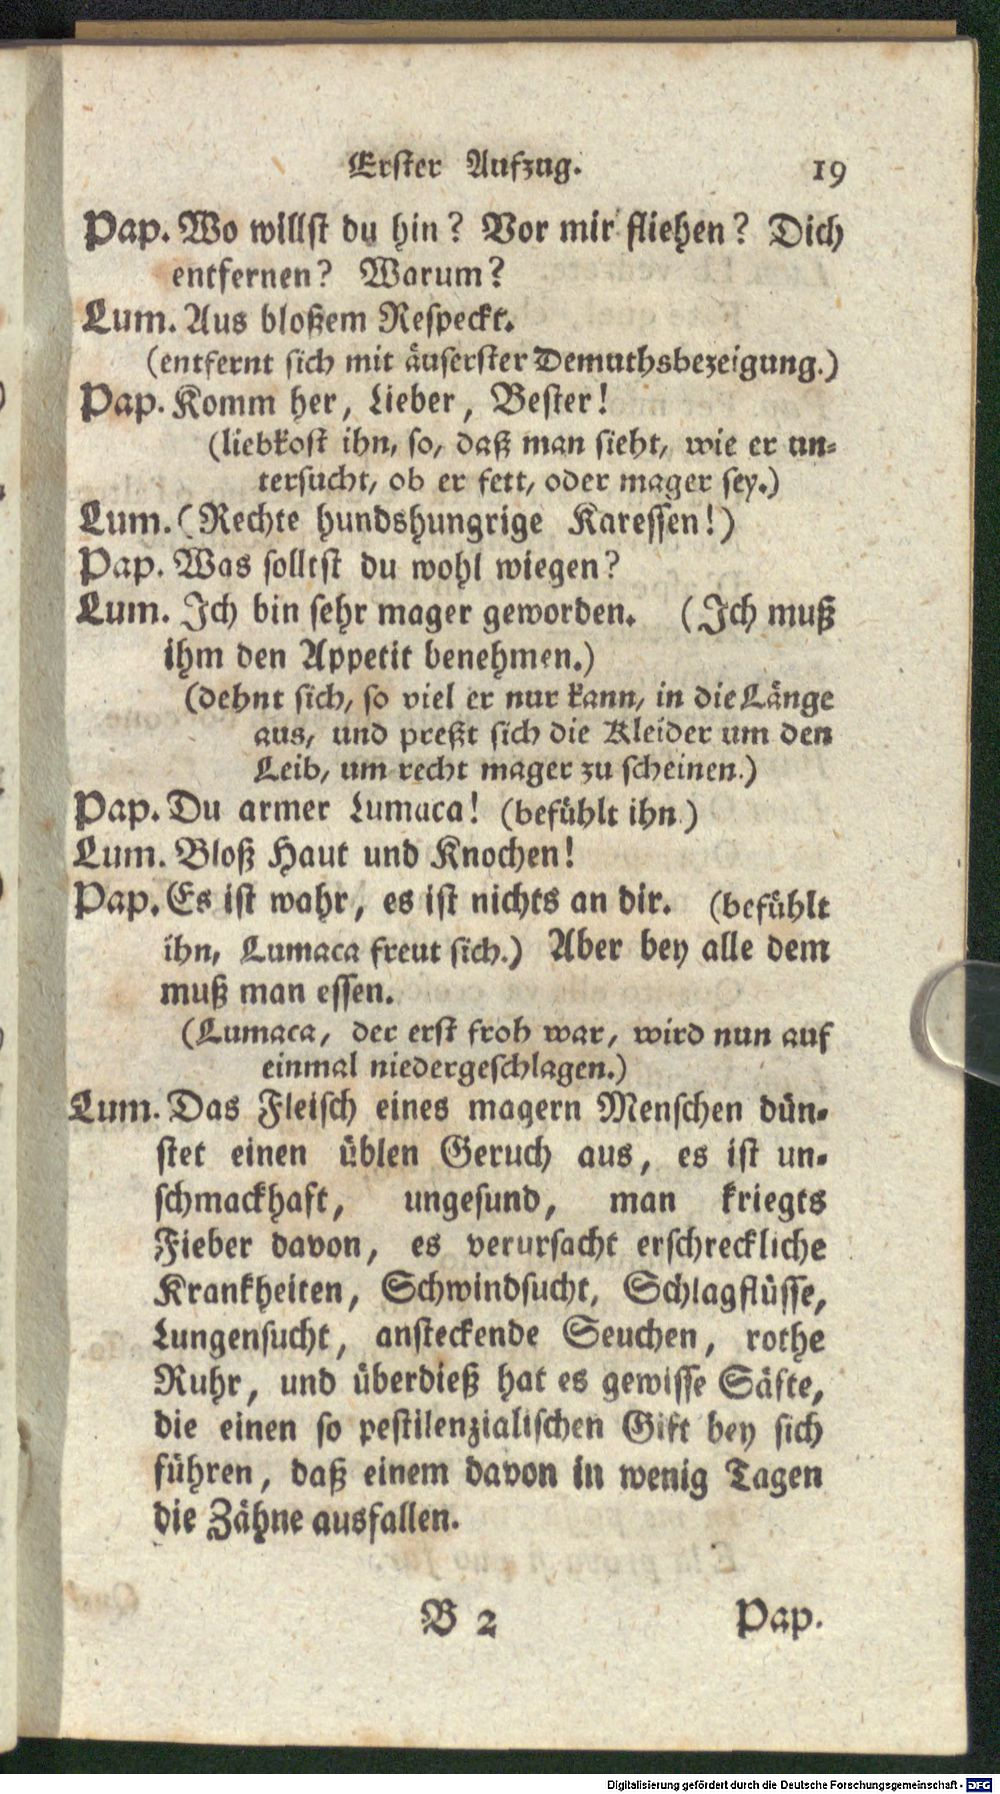 Erster Aufzug. 19
Pap. Wo willst du hin? Vor mir fliehen? Dich
entfernen? Warum?
Lum. Aus bloßem Respeckt.
(entfernt sich mit äuserster Demuthsbezeigung.)
Pap. Komm her, Lieber, Bester!
(liebkost ihn, so, daß man sieht, wie er un-
tersucht, ob er fett, oder mager sey.)
Lum. (Rechte hundshungrige Karessen!)
Pap. Was solltst du wohl wiegen?
Lum. Ich bin sehr mager geworden. (Ich muß
ihm den Appetit benehmen.)
(dehnt sich, so viel er nur kann, in die Länge
aus, und preßt sich die Kleider um den
Leib, um recht mager zu scheinen.)
Pap. Du armer Lumaca! (befühlt ihn.)
Lum. Bloß Haut und Knochen!
Pap. Es ist wahr, es ist nichts an dir. (befühlt
ihn, Lumaca freut sich.) Aber bey alle dem
muß man essen.
(Lumaca, der erst froh war, wird nun auf
einmal niedergeschlagen.)
Lum. Das Fleisch eines magern Menschen dün-
stet einen üblen Geruch aus, es ist un-
schmackhaft, ungesund, man kriegts
Fieber davon, es verursacht erschreckliche
Krankheiten, Schwindsucht, Schlagflüsse,
Lungensucht, ansteckende Seuchen, rothe
Ruhr, und überdieß hat es gewisse Säfte,
die einen so pestilenzialischen Gift bey sich
führen, daß einem davon in wenig Tagen
die Zähne ausfallen.
B 2 Pap.
Digitalisierung gefördert durch die Deutsche Forschungsgemeinschaft - DFG